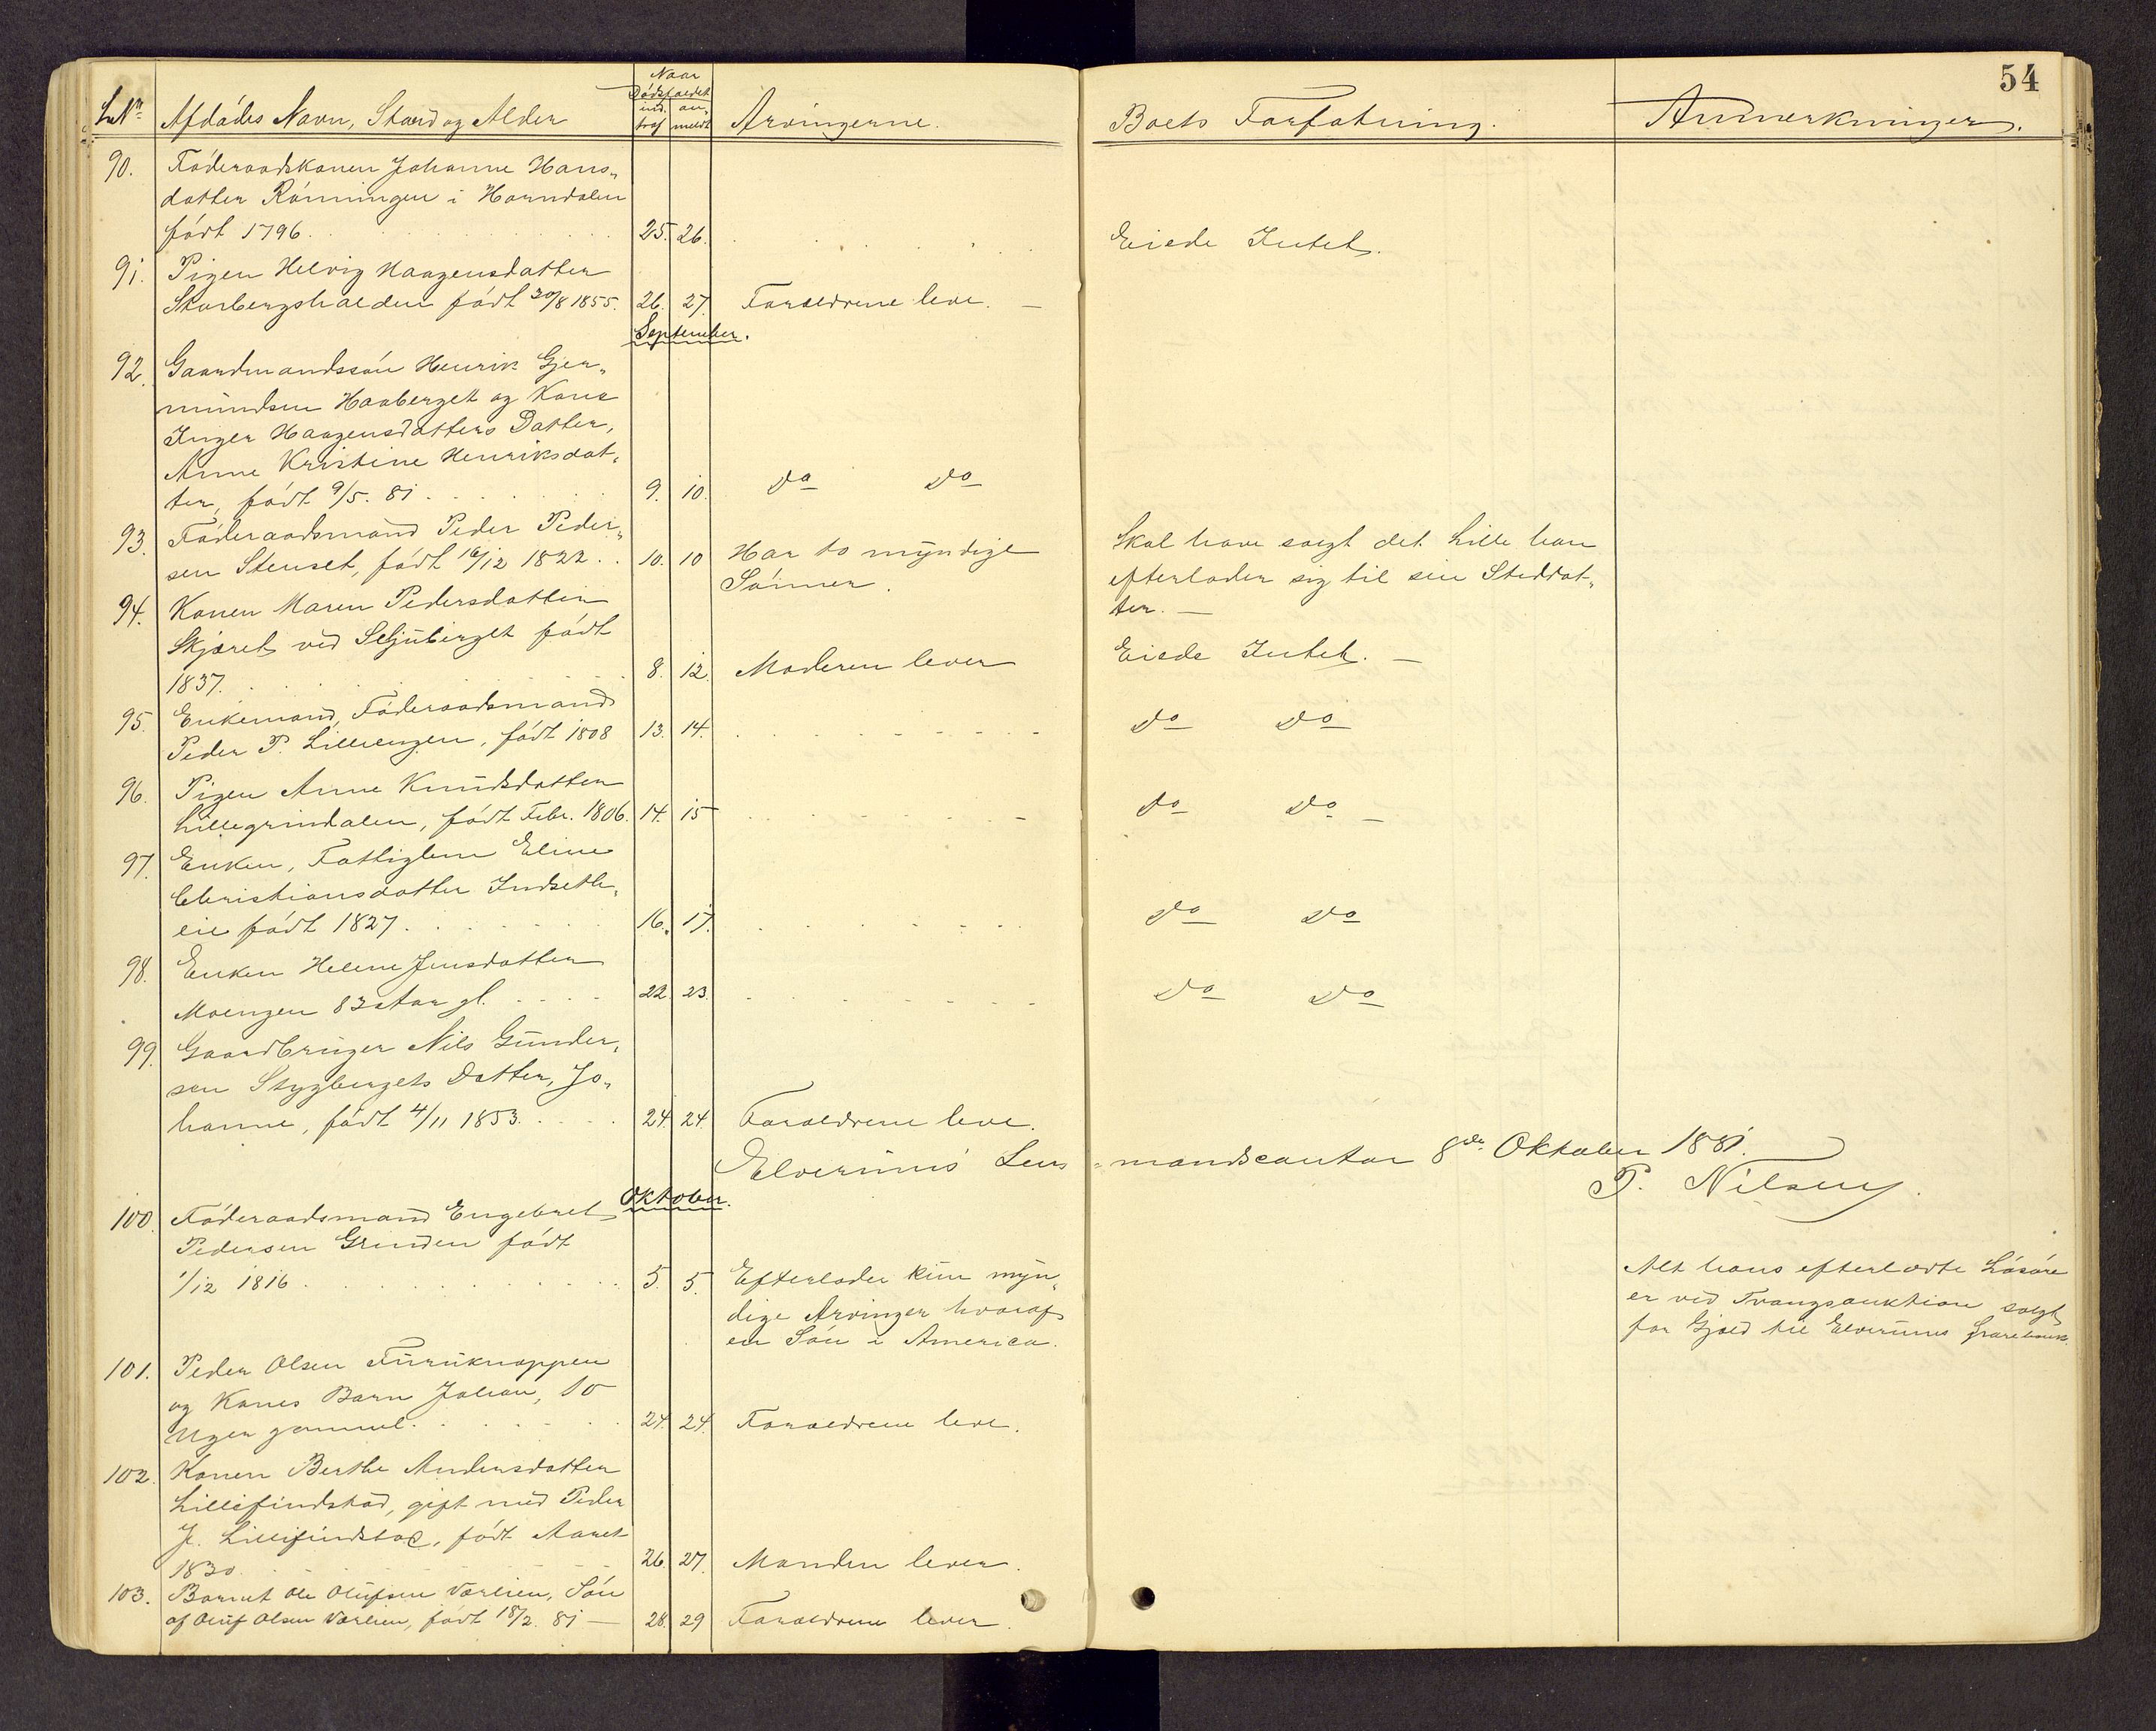 54
Naar
Dødsfaldet
LNr. Afdødes Navn, Stand og Alder ind- traf an- meldt Arvingerne. Boets Forfatning. Anmerkninger.
90. Føderaadskonen Johanne Hans-
datter Rønningen i Horndalen
født 1796. 25. 26. Eiede Intet.
91. Pigen Helvig Haagensdatter
Skarbergshalden født 30/8 1855. 26. 27. Forældrene leve. —
September.
92. Gaardmandssøn Henrik Gjer-
mundsen Haaberget og Kone
Inger Haagensdatters Datter,
Anne Kristine Henriksdat-
ter, født 9/5. 81. 9. 10. do do
93. Føderaadsmand Peder Peder-
sen Stenset, født 16/12 1822. 10. 10 Har to myndige Skal have solgt det Lille han
Sønner. efterlader sig til sin Steddat-
ter. —
94. Konen Maren Pedersdatter
Skjæret ved Seljuberget født
1837. 8. 12. Moderen lever Eiede Intet. —
95. Enkemand, Føderaadsmand
Peder P. Lilleengen, født 1808 13. 14. do do
96. Pigen Anne Knudsdatter
Lillegrindalen, født Febr. 1806. 14. 15 do do
97. Enken, Fattiglem Eline
Christiansdatter Indseth-
eie født 1827. 16. 17. do do
98. Enken Helene Jensdatter
Moengen 83 Aar gl. 22. 23. do do
99. Gaardbruger Nils Gunder-
sen Stygbergets Datter, Jo-
hanne, født 4/11 1853. 24. 24. Forældrene leve.
Elverums Lens-mandscontor 8de Oktober 1881.
P. Nilsen.
Oktober.
100. Føderaadsmand Engebret
Pedersen Grinden født
1/12 1816. 5. 5. Efterlader kun myn- Alt hans efterladte Løsøre
dige Arvinger hvoraf er ved Tvangsauktion solgt
en Søn i America. for Gjæld til Elverums Sparebank.
101. Peder Olsen Furuknappen
og Kones Barn Johan, 10
Uger gammel. 24. 24. Forældrene leve.
102. Konen Berthe Andersdatter
Lillefindstad, gift med Peder
J. Lillefindstad, født Aaret
1830. 26. 27. Manden lever.
103. Barnet Ole Olufsen Vorlien, Søn
af Oluf Olsen Vorlien, født 18/2. 81 — 28. 29 Forældrene lever.